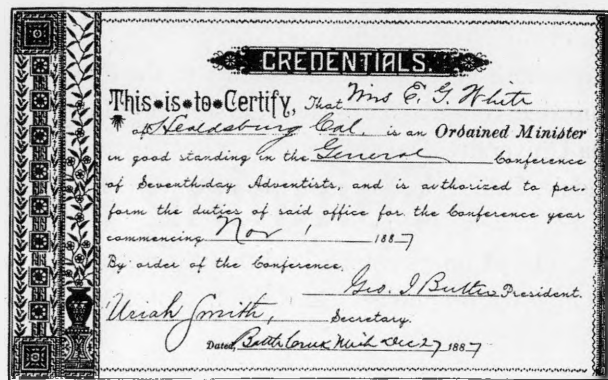 CREDENTIALS.
This is to Certify, That Mrs E. G. White
of Healdsburg Cal. is an Ordained Minister
in good standing in the General Conference
of Seventh-day Adventists, and is authorized to per-
form the duties of said office for the Conference year
commencing Nov 1 1887
By order of the Conference.
Geo. I Butler President.
Uriah Smith, Secretary.
Dated, Battle Creek Mich Dec 27 1887